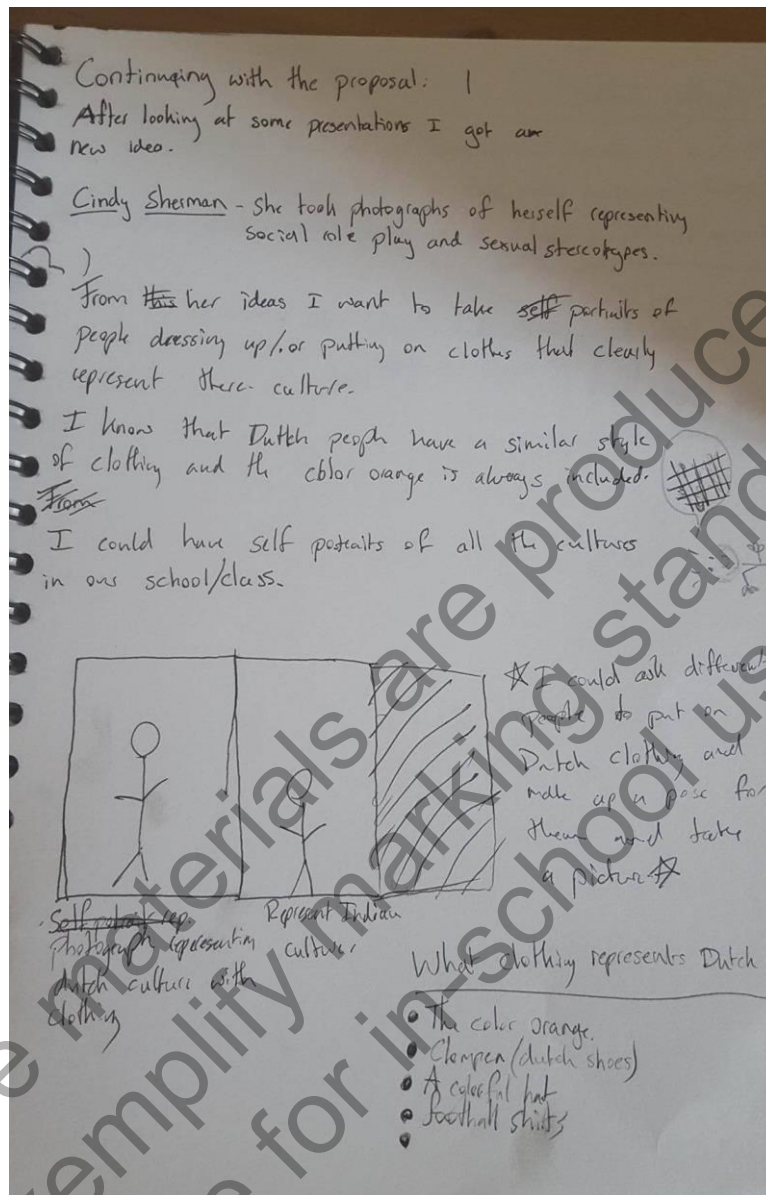 Continuning with the proposal: 1
After looking at some presentations I got an
new idea.
Cindy Sherman - She took photographs of herself representing
social role play and sexual stereotypes.
From this her ideas I want to take self portraits of
people dressing up/or putting on clothes that clearly
represent there culture.
I know that Dutch people have a similar style
of clothing and the color orange is always included.
From
I could have self postraits of all the cultures
in our school/class.
I could ask different
people to put on
Dutch clothing and
make up a pose for
them and take
a picture
Self portrait rep.
photograph representing
dutch culture with
clothing
Represent Indian
culture.
What clothing represents Dutch
The color orange.
Clompen (dutch shoes)
A colorful hat
football shirts
e materials are produce
emplify marking stand
e for in-school us